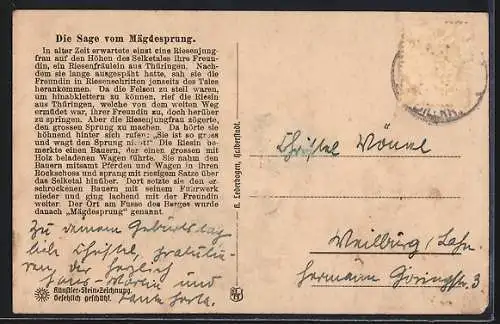 Die Sage vom Mägdesprung.
In alter Zeit erwartete einst eine Riesenjung-
frau auf den Höhen des Selketales ihre Freun-
din, ein Riesenfräulein aus Thüringen. Nach-
dem sie lange ausgespäht hatte, sah sie die
Freundin in Riesenschritten jenseits des Tales
herankommen. Da die Felsen zu steil waren,
um hinabklettern zu können, rief die Riesin
aus Thüringen, welche von dem weiten Weg
ermüdet war, ihrer Freundin zu, doch herüber
zu springen. Aber die Riesenjungfrau zögerte,
den grossen Sprung zu machen. Da hörte sie
höhnend hinter sich rufen: „Sie ist so gross
und wagt den Sprung nicht!" Die Riesin be-
merkte einen Bauern, der einen grossen mit
Holz beladenen Wagen führte. Sie nahm den
Bauern mitsamt Pferden und Wagen in ihren
Rockschoss und sprang mit riesigem Satze über
das Selketal hinüber. Dort setzte sie den er-
schrockenen Bauern mit seinem Fuhrwerk
nieder und ging lachend mit der Freundin
weiter. Der Ort am Fusse des Berges wurde
danach „Mägdesprung" genannt.
Zu deinem Geburtstag
lieb Christel, gratulie-
ren, der herzlich
Hans-Martin und
Tante Herta.
Künstler-Stein-Zeichnung.
Gesetzlich geschützt.
R. Lederbogen, Halberstadt.
Christel
Weilburg/Lahn
Hermann Göringstr. 3